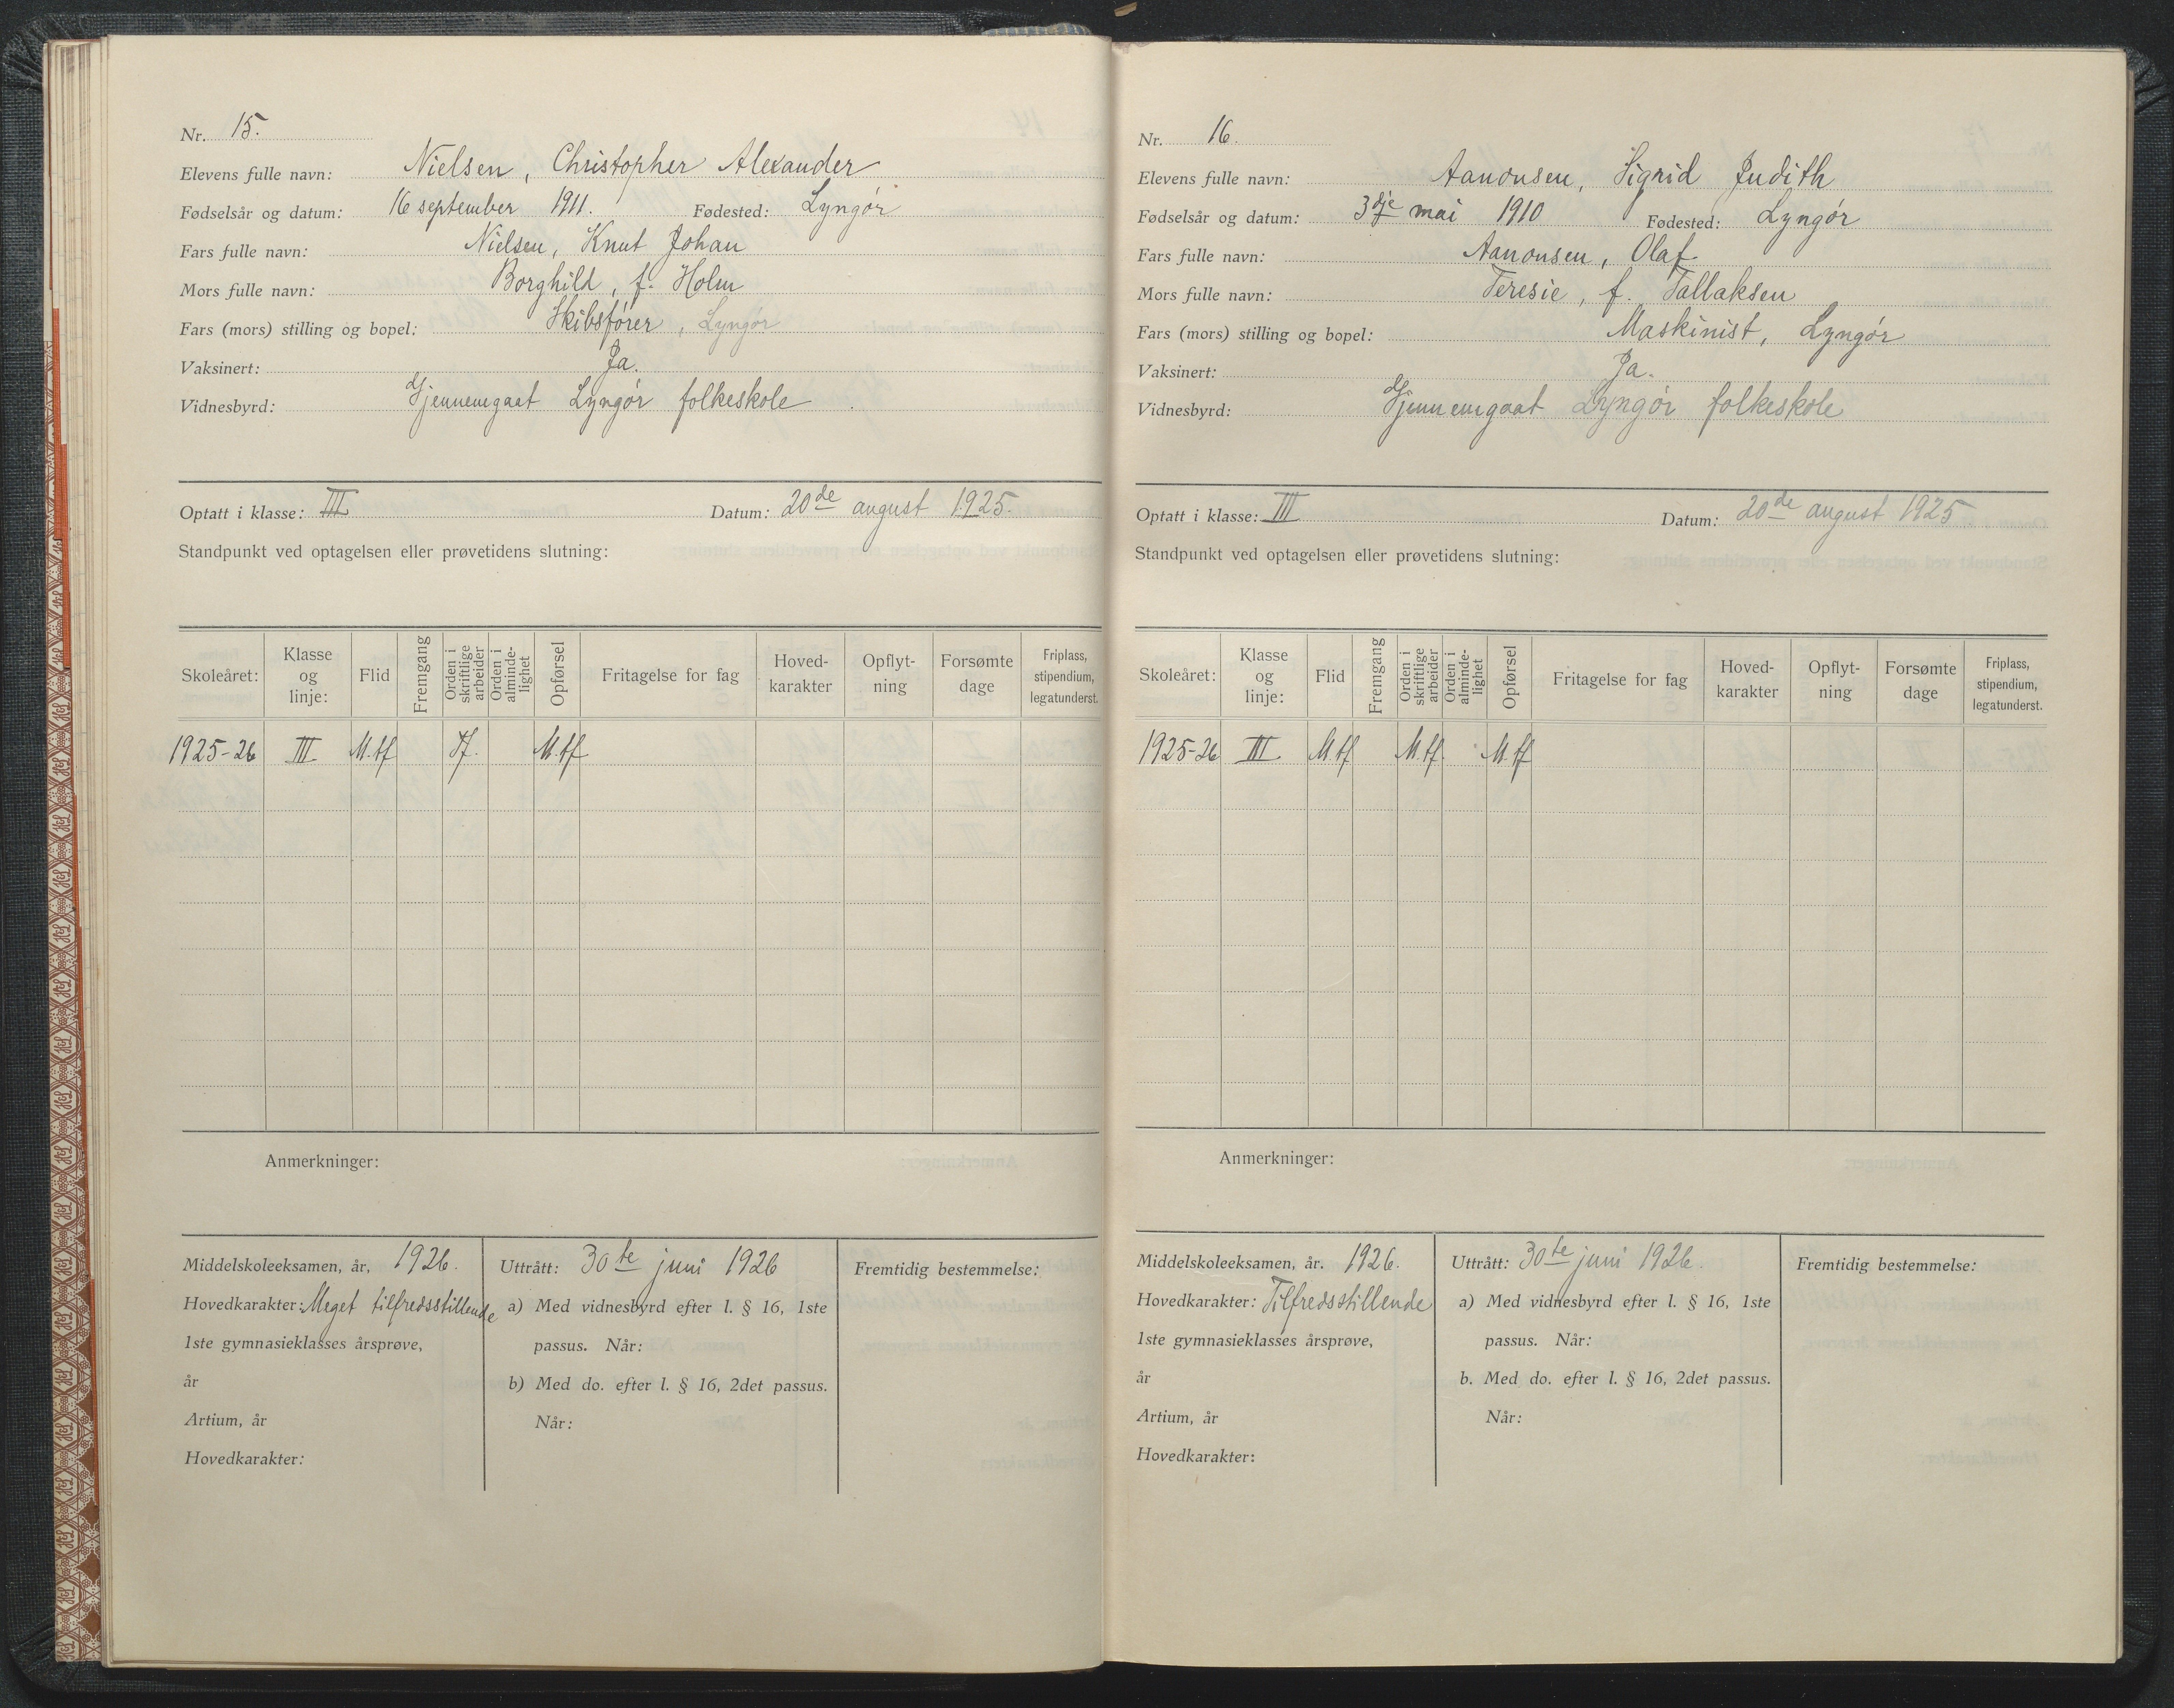 Nr. 15.
Elevens fulle navn: Nielsen, Christopher Alexander
Fødselsår og datum: 16 september 1911. Fødested: Lyngör
Fars fulle navn: Nielsen, Knut Johan
Mors fulle navn: Borghild, f. Holm
Fars (mors) stilling og bopel: Skibsfører, Lyngör
Vaksinert: Ja.
Vidnesbyrd: Gjennemgaat Lyngör folkeskole
Optatt i klasse: III Datum: 20de august 1925.
Standpunkt ved optagelsen eller prøvetidens slutning:
Skoleåret: Klasse og linje: Flid Fremgang Orden i skriftlige arbeider Orden i alminde-lighet Opførsel Fritagelse for fag Hoved-karakter Opflyt-ning Forsømte dage Friplass, stipendium, legatunderst.
1925-26 III M.tf Tf. M.tf
Anmerkninger:
Middelskoleeksamen, år, 1926.
Hovedkarakter: Meget tilfredsstillende
1ste gymnasieklasses årsprøve,
år
Artium, år
Hovedkarakter:
Uttrått: 30te juni 1926
a) Med vidnesbyrd efter l. § 16, 1ste
passus. Når:
b) Med do. efter l. § 16, 2det passus.
Når:
Fremtidig bestemmelse:
Nr. 16.
Elevens fulle navn: Aanonsen, Sigrid Judith
Fødselsår og datum: 3dje mai 1910 Fødested: Lyngör
Fars fulle navn: Aanonsen, Olaf
Mors fulle navn: Teresie, f. Tallaksen
Fars (mors) stilling og bopel: Maskinist, Lyngör
Vaksinert: Ja.
Vidnesbyrd: Gjennemgaat Lyngör folkeskole
Optatt i klasse: III Datum: 20de august 1925
Standpunkt ved optagelsen eller prøvetidens slutning:
Skoleåret: Klasse og linje: Flid Fremgang Orden i skriftlige arbeider Orden i alminde-lighet Opførsel Fritagelse for fag Hoved-karakter Opflyt-ning Forsømte dage Friplass, stipendium, legatunderst.
1925-26 III M.tf M.tf. M.tf
Anmerkninger:
Middelskoleeksamen, år. 1926.
Hovedkarakter: Tilfredsstillende
1ste gymnasieklasses årsprøve,
år
Artium, år
Hovedkarakter:
Uttrått: 30te juni 1926.
a) Med vidnesbyrd efter l. § 16, 1ste
passus. Når:
b. Med do. efter l. § 16, 2det passus.
Når:
Fremtidig bestemmelse: